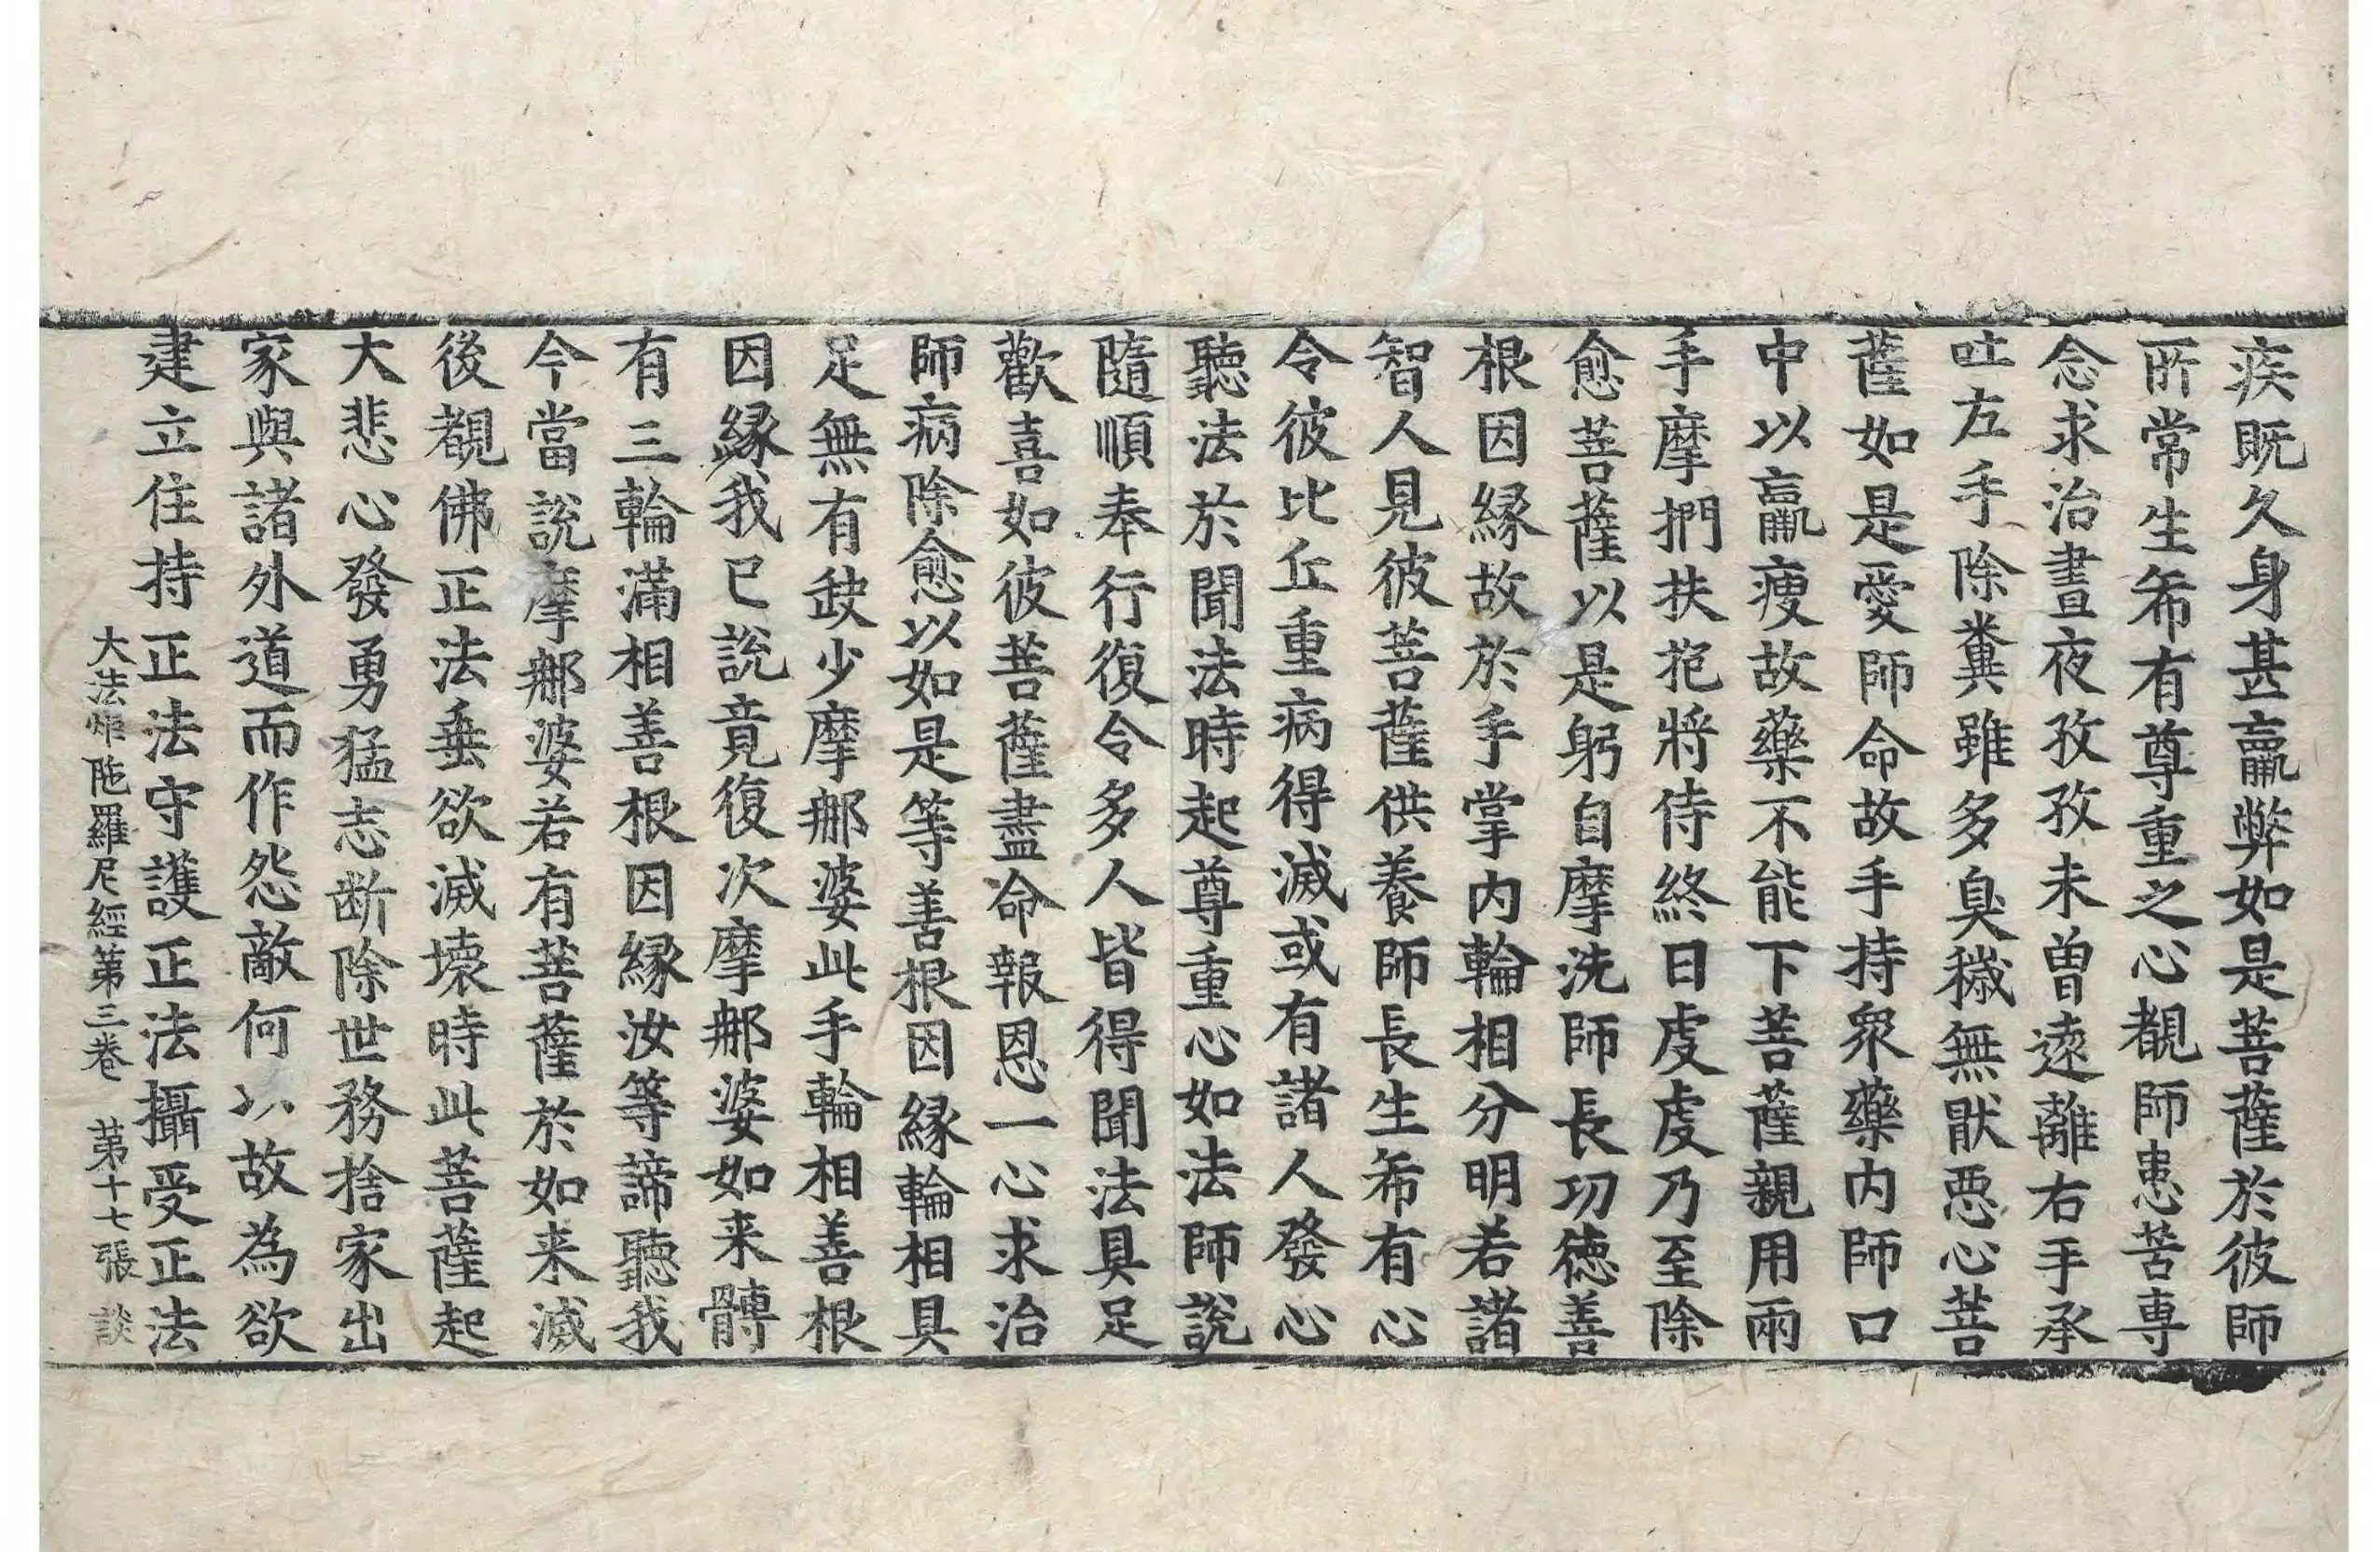 疾既久身甚羸弊如是菩薩於彼師
所常生希有尊重之心覩師患苦專
念求治晝夜孜孜未曾遠離右手承
吐左手除糞雖多臭穢無猒惡心菩
薩如是愛師命故手持衆藥内師口
中以羸瘦故藥不能下菩薩親用兩
手摩捫扶抱將侍終日虔虔乃至除
愈菩薩以是躬自摩洗師長功德善
根因縁故於手掌内輪相分明若諸
智人見彼菩薩供養師長生希有心
令彼比丘重病得滅或有諸人發心
聽法於聞法時起尊重心如法師說
隨順奉行復令多人皆得聞法具足
歡喜如彼菩薩盡命報恩一心求治
師病除愈以如是等善根因縁輪相具
足無有缺少摩那婆此手輪相善根
因縁我已說竟復次摩那婆如来髆
有三輪滿相善根因縁汝等諦聽我
今當說摩那婆若有菩薩於如来滅
後覩佛正法垂欲滅壞時此菩薩起
大悲心發勇猛志断除世務捨家出
家與諸外道而作怨敵何以故為欲
建立住持正法守護正法攝受正法
大法炬陁羅尼經第三卷 第十七張 談